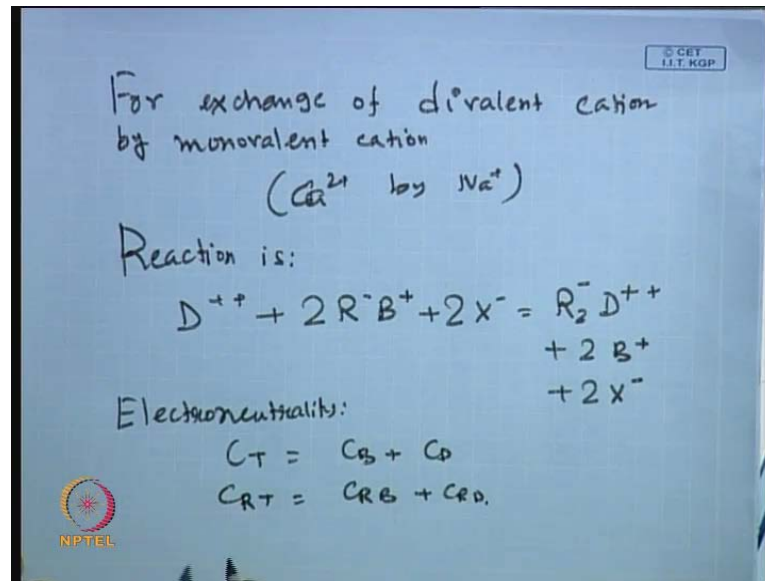 © CET
I.I.T. KGP
For exchange of divalent cation
by monovalent cation
(Ca²⁺ by Na⁺)
Reaction is:
D⁺⁺ + 2 R⁻B⁺ + 2 X⁻ = R₂⁻ D⁺⁺
+ 2 B⁺
+ 2 X⁻
Electroneutrality:
C_T = C_B + C_D
C_RT = C_RB + C_RD.
NPTEL